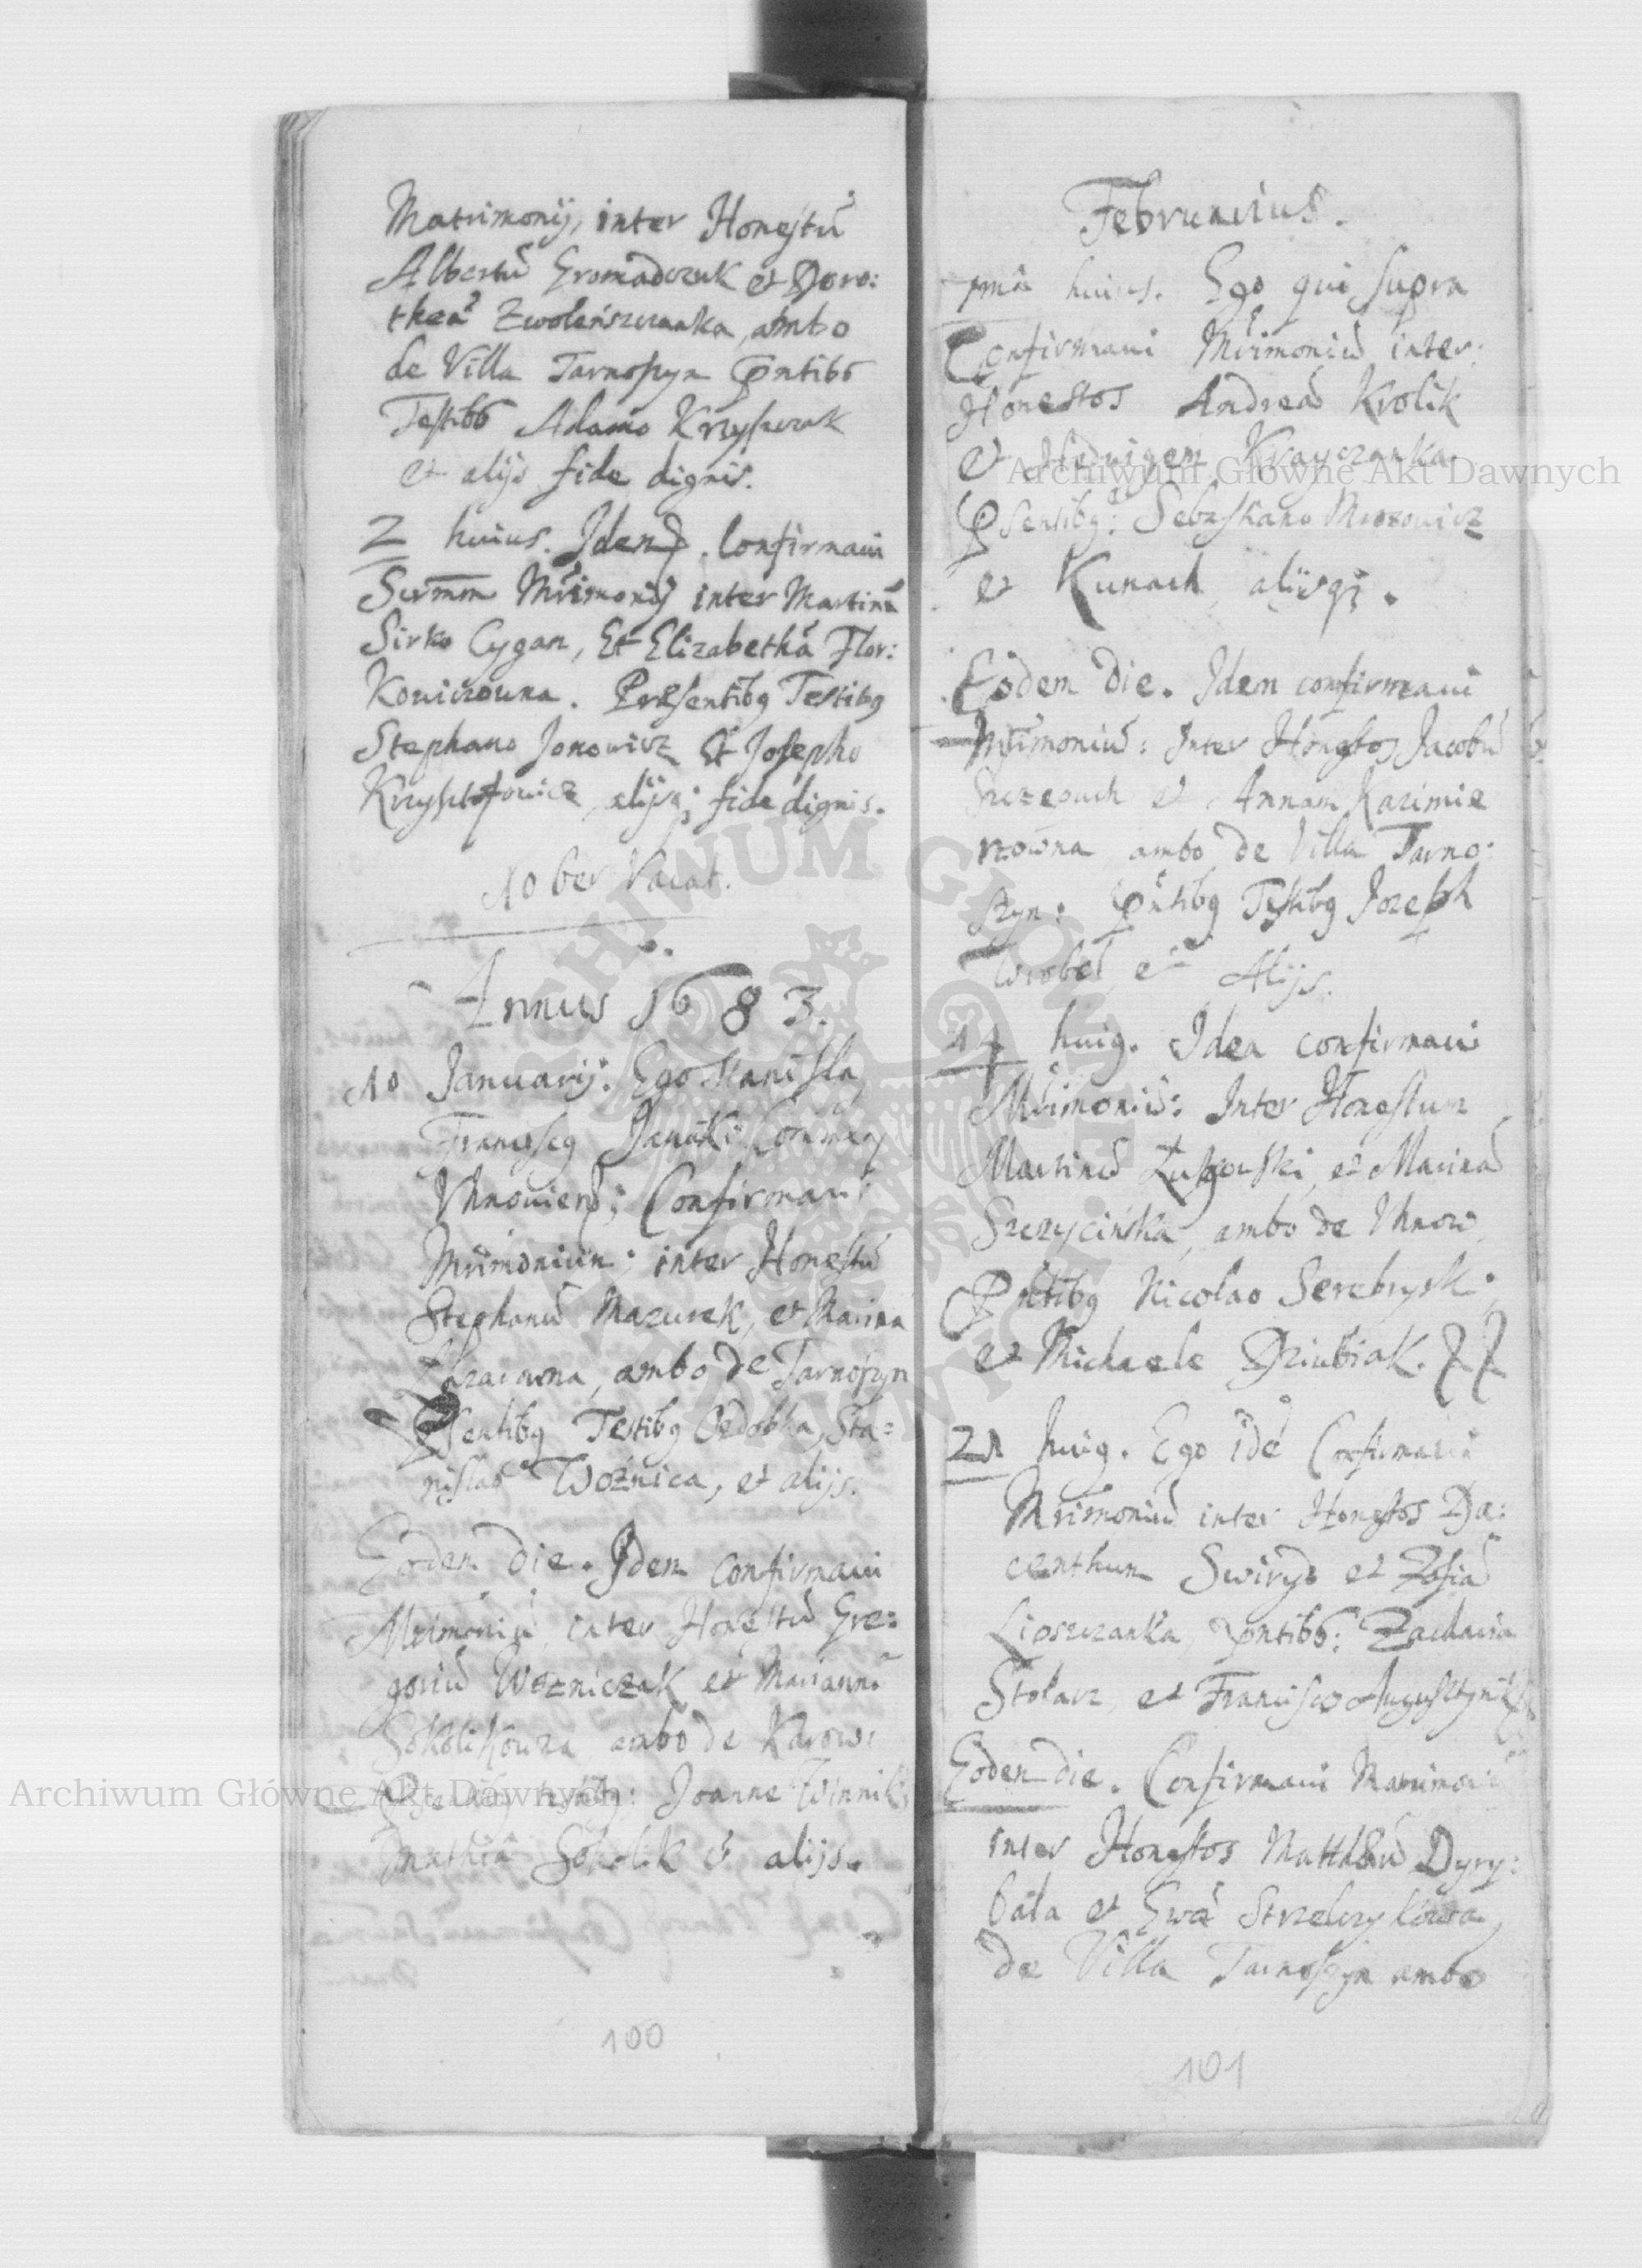 Matrimonij, inter Honestũ
Albertũ Gromadczuk et Doro:
theã Zwolenszczanka, ambo
de Villa Tarnoszyn pntibs
Testibs Adamo Krzyszczuk
et alijs fide dignis.
2 huius. Idem. Confirmaui
Scrmm Mrimonij inter Martinũ
Sirko Cygan, Et Elizabethã Flor:
Kowiczowna. Præsentibg Testibg
Stephano Jonowicz Et Josepho
Krzysztofowicz alijsq; fide dignis.
10ber Vacat.
Annus 1683.
10 Januarij. Ego Stanisla
Franciscg Confirmaui
Mrimonium; inter Honestũ
Stephanũ Mazurek, et Marina
ambo de Tarnoszyn
Psentibg Testibg Sta=
nislao Woźnica, et alijs.
Eodem die. Idem confirmaui
Mrimoniũ inter Honestũ Gre:
goriũ Wozniczak et Mariannã
Sokolikowna ambo de Karow:
Psentibg testibg: Joanne Winnik,
Mathia Sokolik & alijs.
100
Februarius.
pmâ huius. Ego qui supra
Confirmaui Mrimoniũ inter:
Honestos Andreã Krolik
et Hedvigem Krayczanka
Psentibg: Sebastiano Mrozowicz
et Kunach alijsq; .
Eodem Die. Idem confirmaui
Mrimoniũ: Inter Honestos Jacobũ
et Annam Kazimie
rzowna ambo de Villa Tarno:
szyn: Pntibg Testibg Jozeph
Wrobel et Alijs.
14 huig. Idem confirmaui
Mrimoniũ: Inter Honestum
Martinũ et Marinã
Szczycińska, ambo de Vhnow,
Pntibg Nicolao Serebrysk;
et Michaele Dziubiak.
21 huig. Ego idẽ Confirmaui
Mrimoniũ inter Honestos Ja:
centhum Swiryd et Zofiã
Lipszczanka, pntibs: Zacharia
Stolarz, et Francisco Augustynik
Eodem die. Confirmaui Matrimoniũ
inter Honestos Matthæũ Dyry:
bała et Ewã
de Villa Tarnoszyn ambo
101
Archiwum Główne Akt Dawnych
Archiwum Główne Akt Dawnych
ARCHIWUM GŁÓWNE AKT DAWNYCH